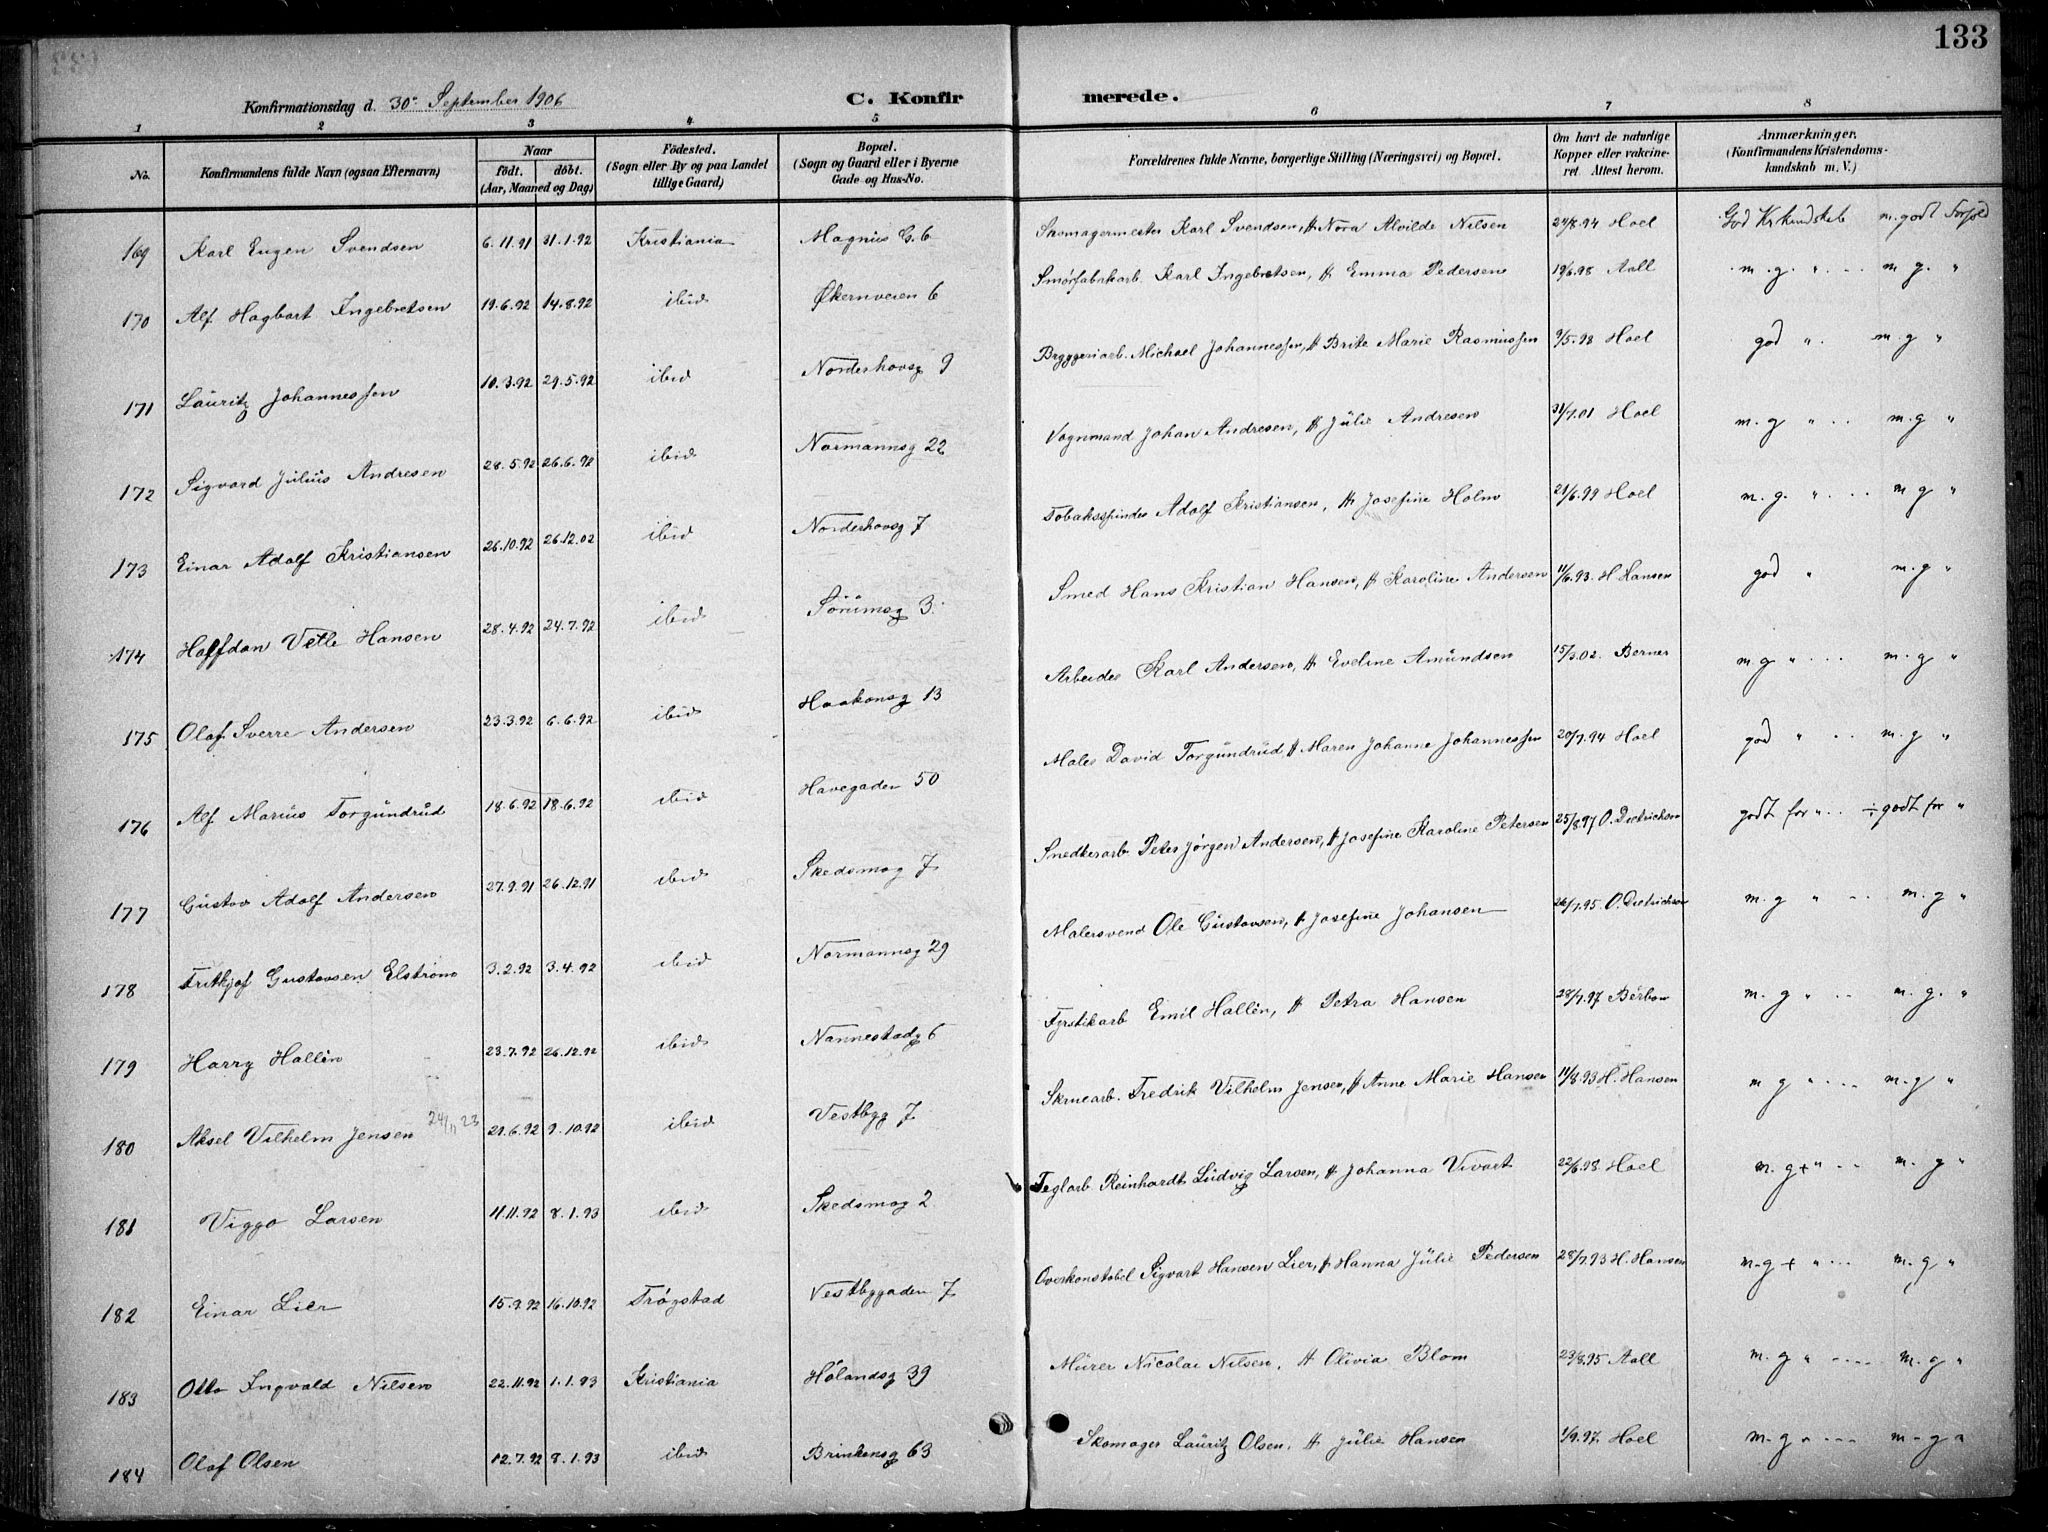 133
Konfirmationsdag d. 30. September 1906
C. Konfirmerede.
1 2 3 4 5 6 7 8
No. Konfirmandens fulde Navn (ogsaa Efternavn) Naar født. døbt. (Aar, Maaned og Dag) Fødested. (Sogn eller By og paa Landet tillige Gaard) Bopæl. (Sogn og Gaard eller i Byerne Gade og Hus-No. Forældrenes fulde Navne, borgerlige Stilling (Næringsvei) og Bopæl. Om havt de naturlige Kopper eller vakcineret. Attest herom. Anmærkninger. (Konfirmandens Kristendomskundskab m. V.)
169 Karl Eugen Svendsen 6.11.91 31.1.92 Kristiania Magnus G. 6 Skomagermester Karl Svendsen, H Nora Alvilde Nilsen 24/8.94 Hoel God Kr kundskab m. godt Forhold
170 Alf Hagbart Ingebretsen 19.6.92 14.8.92 ibid Økernveien 6 Smørfabrikarb. Karl Ingebretsen, H Emma Pedersen 19/6.98 Aall m. g. " m g. "
171 Lauritz Johannessen 10.3.92 29.5.92 ibid Norderhovsg 9 Bryggeriarb. Michael Johannessen, H Brite Marie Rasmussen 9/5.98 Hoel god " m g "
172 Sigvard Julius Andresen 28.5.92 26.6.92 ibid Normannsg 22 Vognmand Johan Andresen, H Julie Andresen 31/7.01 Hoel m. g " m. g "
173 Einar Adolf Kristiansen 26.10.92 26.12.02 ibid Norderhovsg 7 Tobaksspinder Adolf Kristiansen, H Josefine Holm 21/6.99 Hoel m. g. " m g "
174 Halfdan Vetle Hansen 28.4.92 24.7.92 ibid Sörumsg 3. Smed Hans Kristian Hansen, H Karoline Andersen 11/6.93. H. Hansen god " m. g "
175 Olaf Sverre Andersen 23.3.92 6.6.92 ibid Haakonsg 13 Arbeider Karl Andersen, H Eveline Amundsen 15/3.02. Berner m g " m. g "
176 Alf Marius Torgundrud 18.6.92 18.6.92 ibid Havegaden 50 Maler David Torgundrud H Maren Johanne Johannessen 20/7.94 Hoel god " m. g "
177 Gustav Adolf Andersen 27.9.91 26.12.91 ibid Skedsmog 7 Snedkerarb Peter Jørgen Andersen, H Josefine Karoline Petersen 25/8.97 O. Dietrichson godt for " ÷ godt for "
178 Fritkjof Gustavsen Elstrøm 3.2.92 3.4.92 ibid Normannsg 29 Malersvend Ole Gustavsen, H Josefine Johansen 26/7.95 O. Dietrichson m. g " m. g "
179 Harry Hallin 23.7.92 26.12.92 ibid Nannestadg 6 Fyrstikarb Emil Hallin, H Petra Hansen 28/7.97 m. g " m. g. "
180 Aksel Vilhelm Jensen 24/11 23 29.6.92 9.10.92 ibid Vestbyg 7. Skruearb. Fredrik Vilhelm Jensen, H Anne Marie Hansen 11/8.93 H. Hansen m g " m. g "
181 Viggo Larsen 11.11.92 8.1.93 ibid Skedsmog 2 Teglarb Reinhardt Ludvig Larsen, H Johanna Vivart 22/6.98 Hoel m. g + " m. g "
182 Einar Lier 15.9.92 16.10.92 Trøgstad Vestbygaden 7 Overkonstabel Sigvart Hansen Lier, H Hanna Julie Pedersen 28/7.93 H. Hansen m. g + " m. g "
183 Otto Ingvald Nilsen 22.11.92 1.1.93 Kristiania Hölandsg 39 Murer Nicolai Nilsen, H Olivia Blom 23/8.95 Aall m. g " m. g "
184 Olaf Olsen 12.7.92 8.1.93 ibid Brinkensg 63 Skomager Lauritz Olsen, H Julie Hansen 1/9.97. Hoel m. g " m - g "